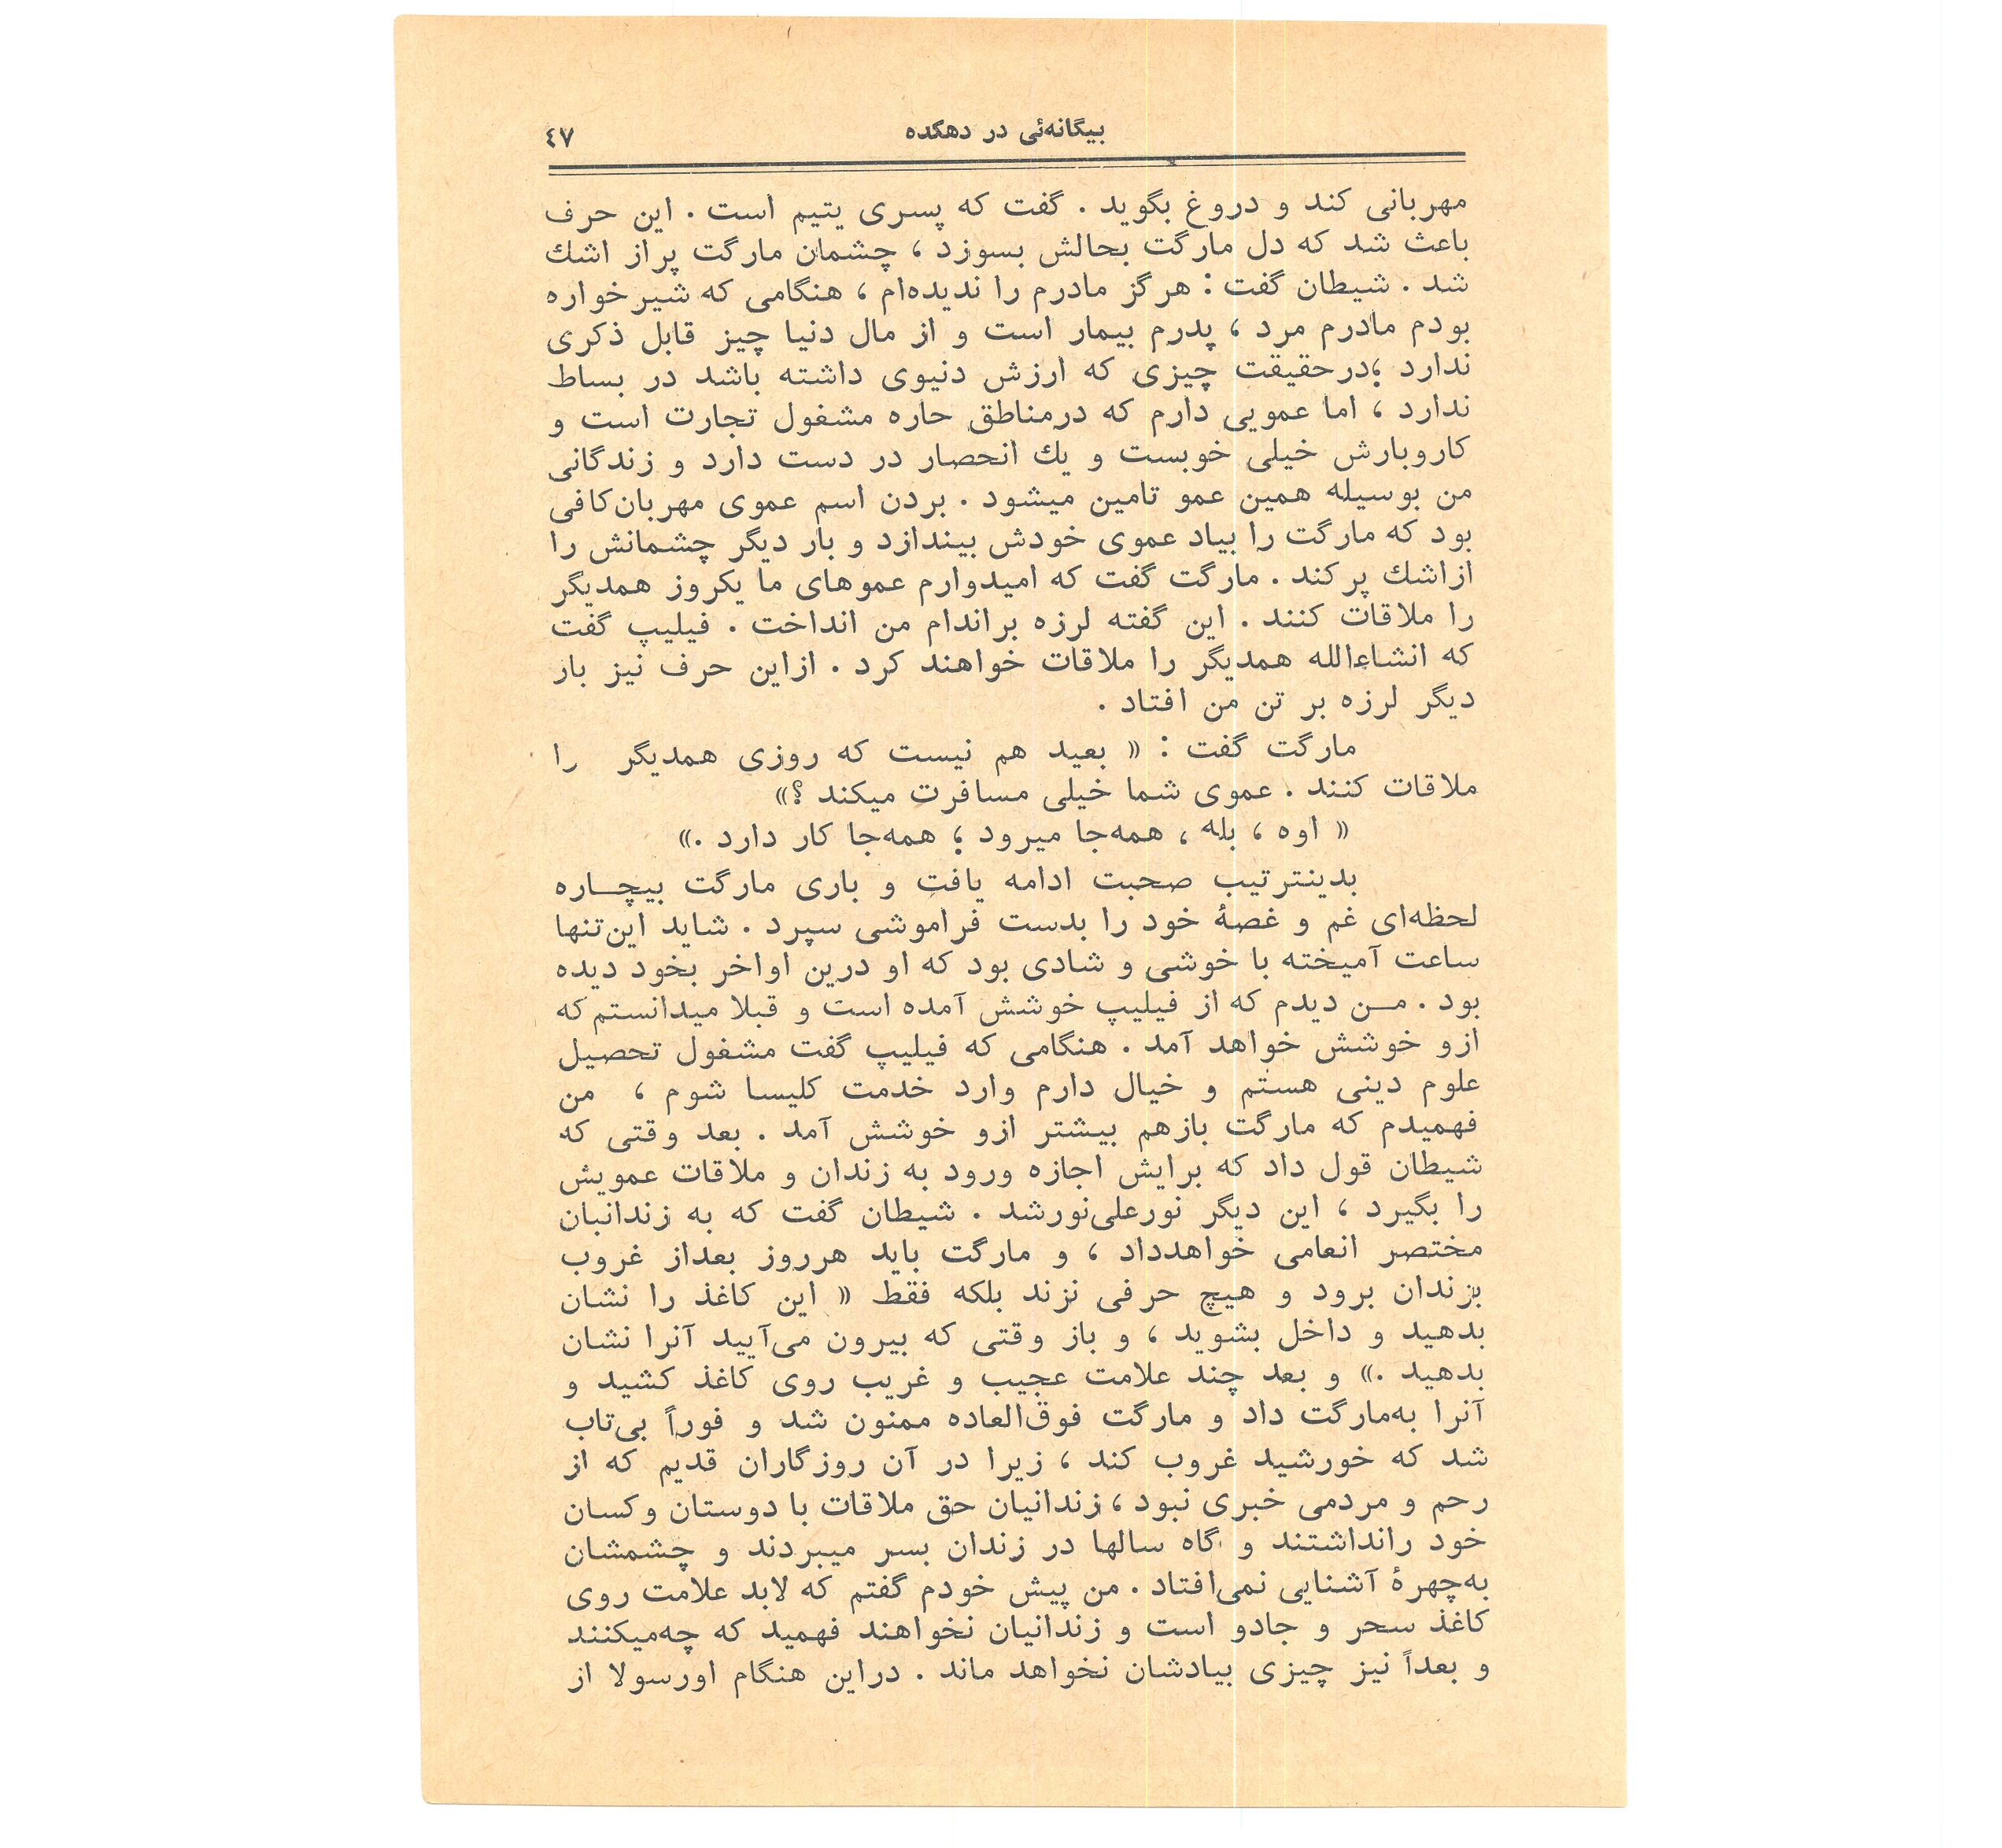 بیگانه‌ئی در دهکده
٤٧
مهربانی کند و دروغ بگوید . گفت که پسری یتیم است . این حرف
باعث شد که دل مارگت بحالش بسوزد ، چشمان مارگت پراز اشك
شد . شیطان گفت : هرگز مادرم را ندیده‌ام ، هنگامی که شیرخواره
بودم مادرم مرد ، پدرم بیمار است و از مال دنیا چیز قابل ذکری
ندارد ؛درحقیقت چیزی که ارزش دنیوی داشته باشد در بساط
ندارد ، اما عمویی دارم که درمناطق حاره مشغول تجارت است و
کاروبارش خیلی خوبست و یك انحصار در دست دارد و زندگانی
من بوسیله همین عمو تامین میشود . بردن اسم عموی مهربان‌کافی
بود که مارگت را بیاد عموی خودش بیندازد و بار دیگر چشمانش را
ازاشك پرکند . مارگت گفت که امیدوارم عموهای ما یکروز همدیگر
را ملاقات کنند . این گفته لرزه براندام من انداخت . فیلیپ گفت
که انشاءالله همدیگر را ملاقات خواهند کرد . ازاین حرف نیز بار
دیگر لرزه بر تن من افتاد .
مارگت گفت : « بعید هم نیست که روزی همدیگر را
ملاقات کنند . عموی شما خیلی مسافرت میکند ؟»
« اوه ، بله ، همه‌جا میرود ؛ همه‌جا کار دارد .»
بدینترتیب صحبت ادامه یافت و باری مارگت بیچــاره
لحظه‌ای غم و غصهٔ خود را بدست فراموشی سپرد . شاید این‌تنها
ساعت آمیخته با خوشی و شادی بود که او درین اواخر بخود دیده
بود . مــن دیدم که از فیلیپ خوشش آمده است و قبلا میدانستم که
ازو خوشش خواهد آمد . هنگامی که فیلیپ گفت مشغول تحصیل
علوم دینی هستم و خیال دارم وارد خدمت کلیسا شوم ، من
فهمیدم که مارگت بازهم بیشتر ازو خوشش آمد . بعد وقتی که
شیطان قول داد که برایش اجازه ورود به زندان و ملاقات عمویش
را بگیرد ، این دیگر نورعلی‌نورشد . شیطان گفت که به زندانبان
مختصر انعامی خواهدداد ، و مارگت باید هرروز بعداز غروب
بزندان برود و هیچ حرفی نزند بلکه فقط « این کاغذ را نشان
بدهید و داخل بشوید ، و باز وقتی که بیرون می‌آیید آنرا نشان
بدهید .» و بعد چند علامت عجیب و غریب روی کاغذ کشید و
آنرا به‌مارگت داد و مارگت فوق‌العاده ممنون شد و فوراً بی‌تاب
شد که خورشید غروب کند ، زیرا در آن روزگاران قدیم که از
رحم و مردمی خبری نبود ، زندانیان حق ملاقات با دوستان وکسان
خود رانداشتند و گاه سالها در زندان بسر میبردند و چشمشان
به‌چهرهٔ آشنایی نمی‌افتاد . من پیش خودم گفتم که لابد علامت روی
کاغذ سحر و جادو است و زندانیان نخواهند فهمید که چه‌میکنند
و بعداً نیز چیزی بیادشان نخواهد ماند . دراین هنگام اورسولا از